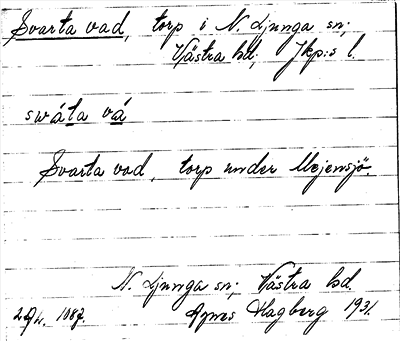 Svarta vad, torp i N. Ljunga sn;
Västra hd; Jkp:s l.
swáta vá
Svarta vad, torp under Mejensjö.
N. Ljunga sn; Västra hd.
Agnes Hagberg 1931.